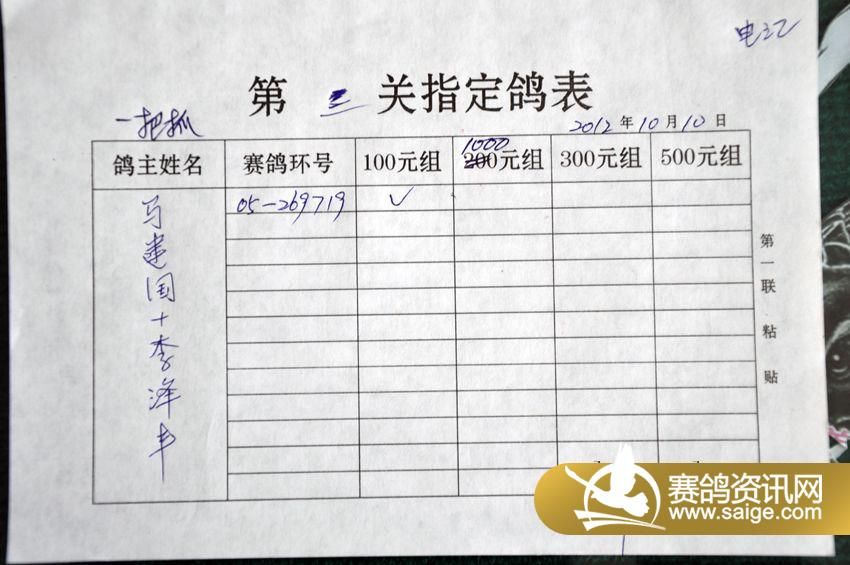 电汇
第 三 关指定鸽表
一把抓
2012年10月10日
鸽主姓名 赛鸽环号 100元组 1000 200元组 300元组 500元组
马建国+李泽丰
05-269719 ✓
第一联 粘贴
赛鸽资讯网
www.saige.com